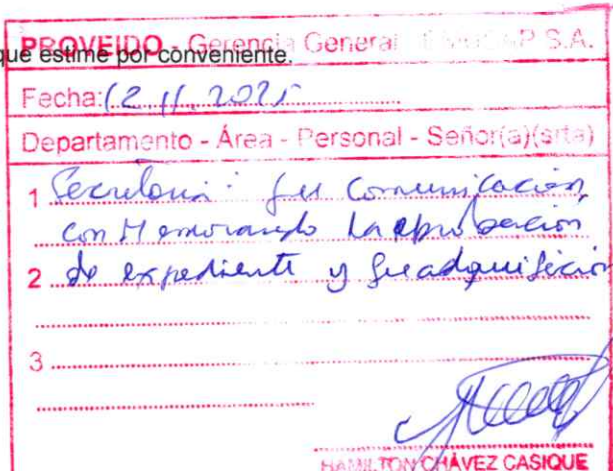 que estime por conveniente.
PROVEIDO - Gerencia General S.A.
Fecha: 12.11.2025
Departamento - Área - Personal - Señor(a)(srta)
1 Secretaria: su comunicación,
con Memorando la aprobación
2 de expediente y su adquisición
3
HAMILTON CHÁVEZ CASIQUE